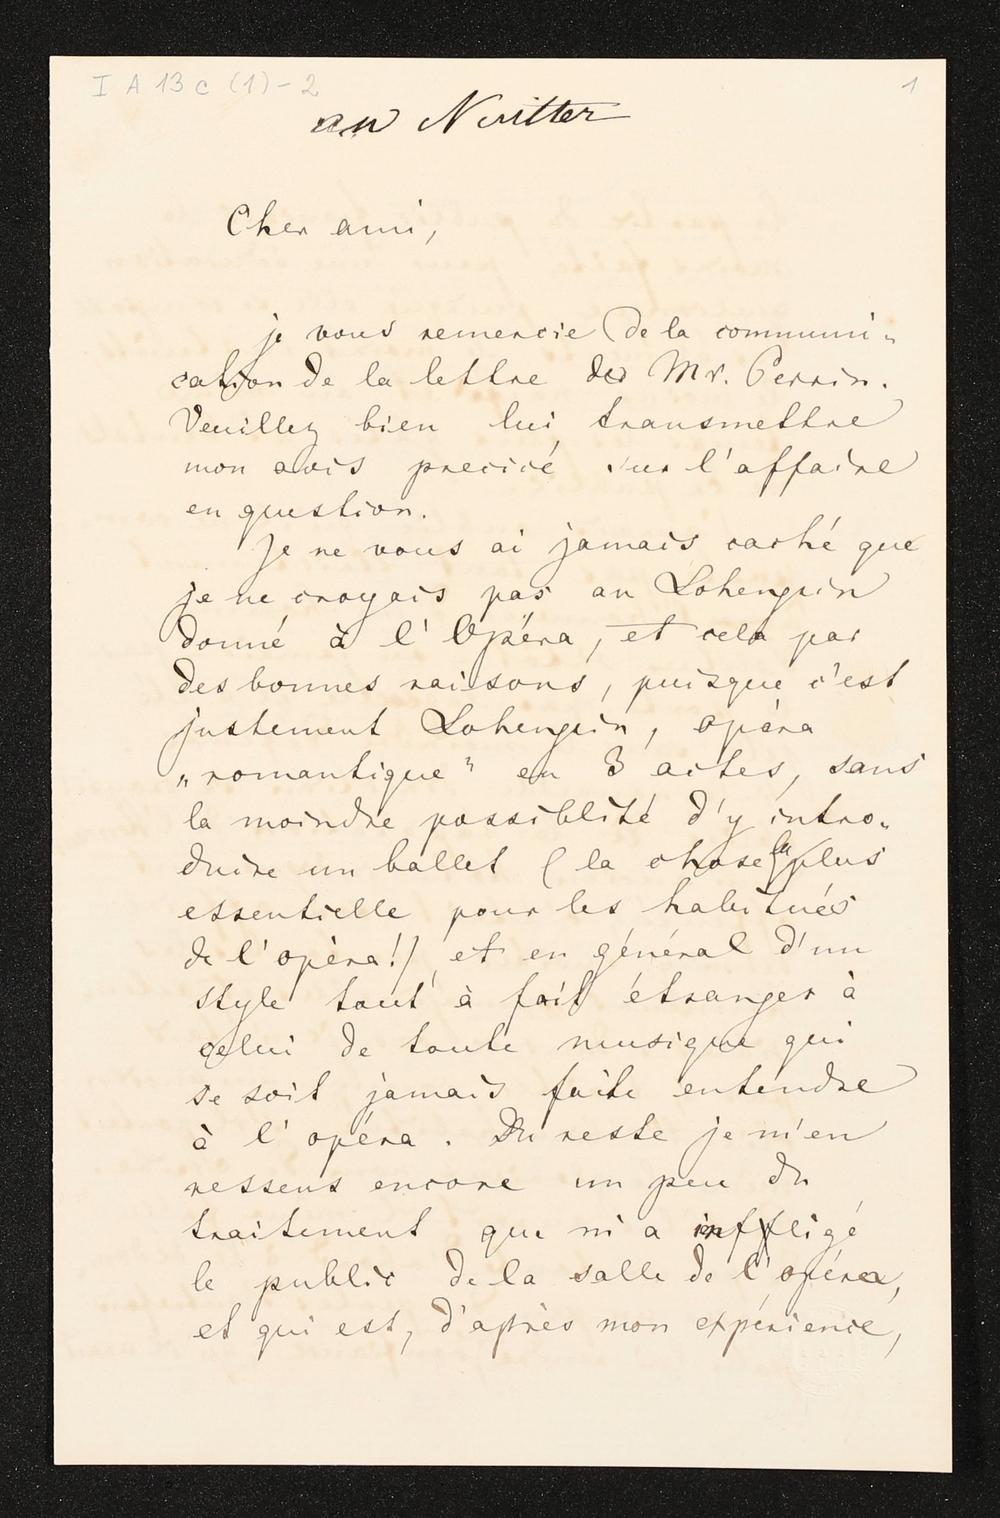 I A 13 c (1)-2
1
an Nuitter
Cher ami,
je vous remercie de la communi-
cation de la lettre de Mr. Perrin.
Veuillez bien lui transmettre
mon avis precicé sur l'affaire
en question.
Je ne vous ai jamais caché que
je ne croyais pas au Lohengrin
donné à l'Opéra, et cela par
des bonnes raisons, puisque c'est
justement Lohengrin, opéra
„romantique" en 3 actes, sans
la moindre possiblité d'y intro-
duire un ballet (la chose la plus
essentielle pour les habitués
de l'opèra!) et en général d'un
style tout à fait étranger à
celui de toute musique qui
se soit jamais faite entendre
à l'opéra. Du reste je m'en
ressens encore un peu du
traitement que m'a infligé
le public de la salle de l'opéra,
et qui est, d'après mon expérience,